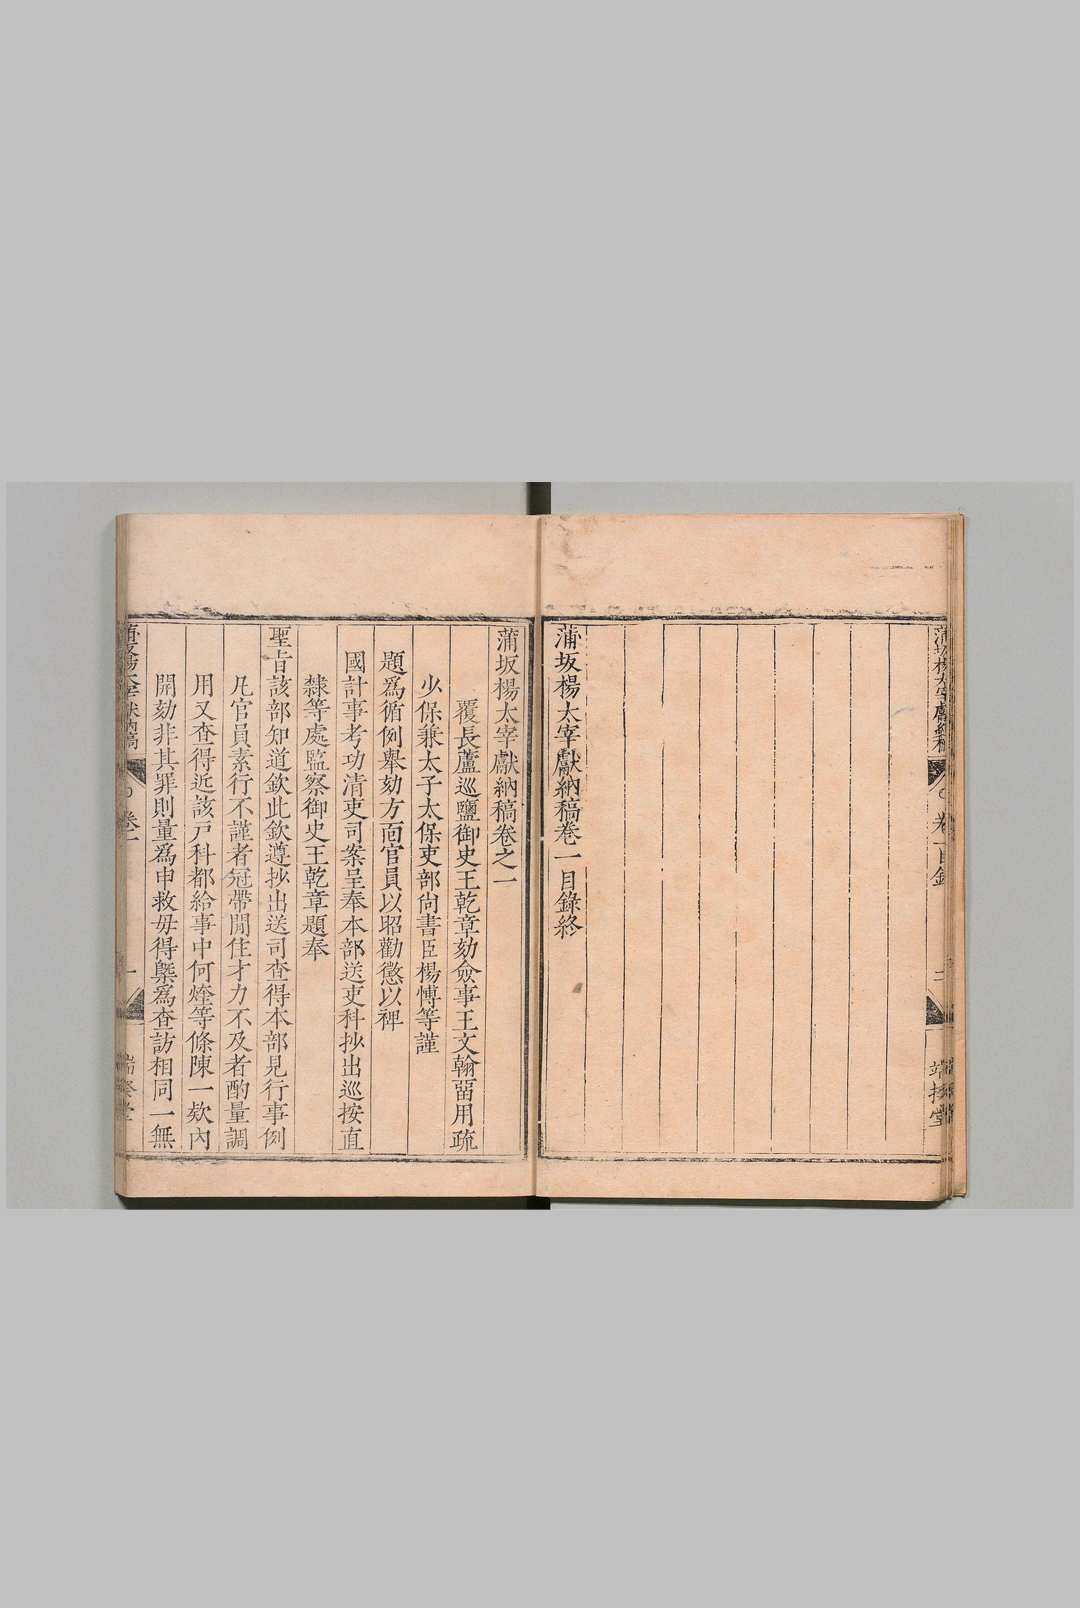 蒲坂楊太宰獻納稿
卷一目錄
二
端揆堂
蒲坂楊太宰獻納稿卷一目錄終
蒲坂楊太宰獻納稿卷之一
覆長蘆巡鹽御史王乾章劾僉事王文翰留用疏
少保兼太子太保吏部尚書臣楊愽等謹
題爲循例舉劾方面官員以昭勸懲以裨
國計事考功清吏司案呈奉本部送吏科抄出巡按直
隸等處監察御史王乾章題奉
聖旨該部知道欽此欽遵抄出送司查得本部見行事例
凡官員素行不謹者冠帶閒住才力不及者酌量調
用又查得近該户科都給事中何煃等條陳一欵內
開劾非其罪則量爲申救毋得槩爲查訪相同一無
卷一
一